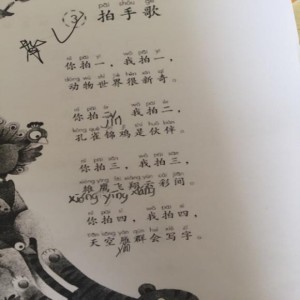 pāi shǒu gē
③ 拍手歌
nǐ pāi yī wǒ pāi yī
你拍一，我拍一，
dòng wù shì jiè hěn xīn qí
动物世界很新奇。
nǐ pāi èr wǒ pāi èr
你拍二，我拍二，
jǐn
kǒng què shì huǒ bàn
孔雀锦鸡是伙伴。
nǐ pāi sān wǒ pāi sān
你拍三，我拍三，
雄鹰飞翔云彩间。
xióng yīng xiáng
nǐ pāi sì wǒ pāi sì
你拍四，我拍四，
tiān kōng yàn qún huì xiě zì
天空雁群会写字。
yàn